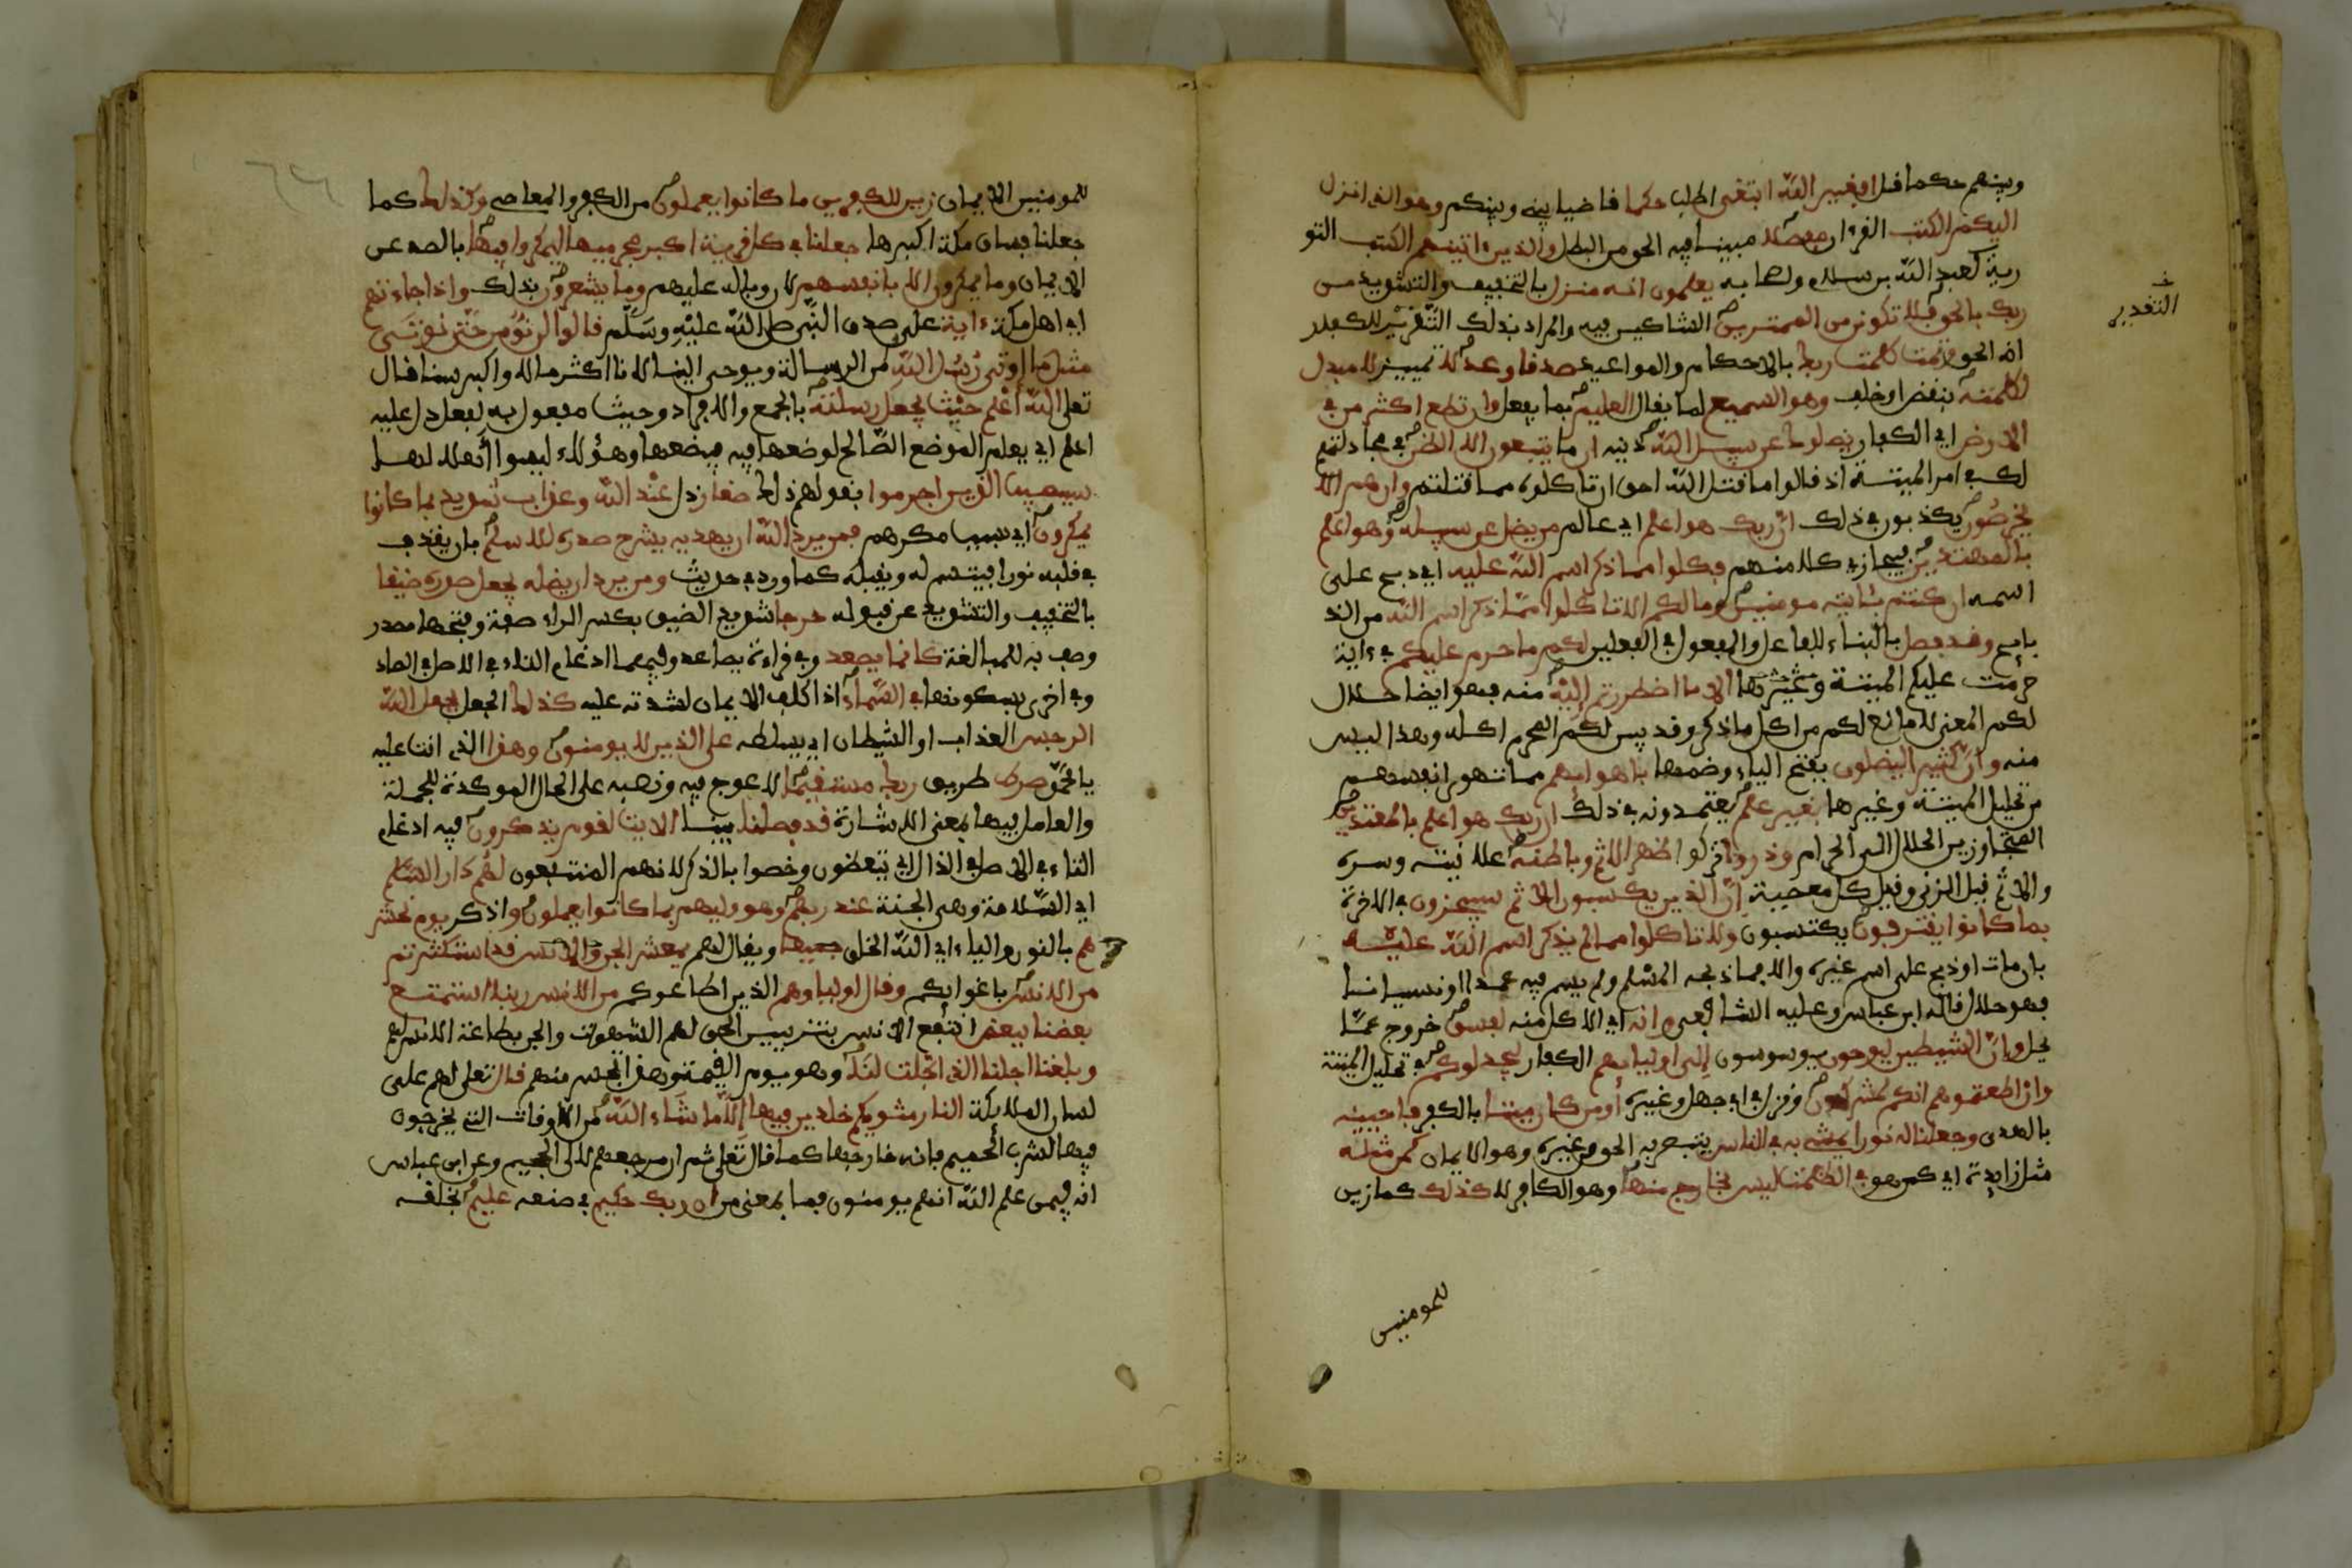 وبينهم حكما قل افغير الله ابتغى اطلب حكما قاضيا بينى وبينكم وهو الذى انزل
اليكم الكتب القرءان مفصلا مبينا فيه الحق من البطل والذين ءاتينهم الكتب التو
رية كعبد الله بن سلام واصحابه يعلمون انه منزل بالتخفيف والتشديد من
ربك بالحق فلا تكونن من الممترين الشاكين فيه والمراد بذلك التقرير للكفار
التقدير
انه الحق وتمت كلمت ربك بالاحكام والمواعيد صدقا وعدلا تمييز لا مبدل
لكلمته بنقض او خلف وهو السميع لما يقال العليم بما يفعل وان تطع اكثر من في
الارض اي الكفار يضلوك عن سبيل الله دينه ان ما يتبعون الا الظن في مجادلتهم
لك في امر الميتة اذ قالوا ما قتل الله احق ان تاكلوه مما قتلتم وان هم الا
يخرصون يكذبون في ذلك ان ربك هو اعلم اي عالم من يضل عن سبيله وهو اعلم
بالمهتدين فيجازي كلا منهم فكلوا مما ذكر اسم الله عليه اي ذبح على
اسمه ان كنتم بئايته مومنين وما لكم الا تاكلوا مما ذكر اسم الله من الذ
بايح وقد فصل بالبناء للفاعل والمفعول في الفعلين لكم ما حرم عليكم في ءاية
حرمت عليكم الميتة وغيرها الا ما اضطررتم اليه منه فهو ايضا حلال
لكم المعنى لا مانع لكم من اكل ما ذكر وقد بين لكم المحرم اكله وهذا ليس
منه وان كثيرا ليضلون بفتح الياء وضمها باهوايهم مما تهوى انفسهم
من تحليل الميتة وغيرها بغير علم يعتمدونه في ذلك ان ربك هو اعلم بالمعتدين
المتجاوزين الحلال الى الحرام وذروا اتركوا ظهر الاثم وباطنه علانيته وسره
والاثم قيل الزنى وقيل كل معصية ان الذين يكسبون الاثم سيجزون في الاخرة
بما كانوا يقترفون يكتسبون ولا تاكلوا مما لم يذكر اسم الله عليه
بان مات او ذبح على اسم غيره والا فما ذبحه المسلم ولم يسم فيه عمدا او نسيانا
فهو حلال قاله ابن عباس وعليه الشافعي وانه اي الاكل منه لفسق خروج عما
يحل وان الشيطين ليوحون يوسوسون الى اوليايهم الكفار ليجدلوكم في تحليل الميتة
وان اطعتموهم انكم لمشركون ونزل في ابي جهل وغيره اومن كان ميتا بالكفر فاحيينه
بالهدى وجعلنا له نورا يمشي به في الناس يتبصر به الحق من غيره وهو الايمان كمن مثله
مثل زايدة اي كمن هو في الظلمت ليس بخارج منها وهو الكافر لا كذلك كما زين
للمومنين
للمومنين الايمان زين للكفرين ما كانوا يعملون من الكفر والمعاصي وكذلك كما
جعلنا فساق مكة اكبرها جعلنا في كل قرية اكبر مجرميها ليمكروا فيها بالصد عن
الايمان وما يمكرون الا بانفسهم لان وباله عليهم وما يشعرون بذلك واذا جاءتهم
اي اهل مكة ءاية على صدق النبي صلى الله عليه وسلم قالوا لن نومن حتى نوتى
مثل ما اوتي رسل الله من الرسالة ويوحى الينا لانا اكثر مالا واكبر سنا قال
تعلى الله اعلم حيث يجعل رسلته بالجمع والافراد وحيث مفعول به لفعل دل عليه
اعلم اي يعلم الموضع الصالح لوضعها فيه فيضعها وهؤلاء ليسوا اهلا لها
سيصيب الذين اجرموا بقولهم ذلك صغار ذل عند الله وعذاب شديد بما كانوا
يمكرون اي بسبب مكرهم فمن يرد الله ان يهديه يشرح صدره للاسلم بان يقذف
في قلبه نورا فينفسح له ويقبله كما ورد في حديث ومن يرد ان يضله يجعل صدره ضيقا
بالتخفيف والتشديد عن قبوله حرجا شديد الضيق بكسر الراء صفة وفتحها مصدر
وصف به للمبالغة كانما يصعد وفي قراءة يصاعد وفيهما ادغام التاء في الاصل في الصاد
وفي اخرى بسكونها في السماء اذا كلف الايمان لشدته عليه كذلك الجعل يجعل الله
الرجس العذاب او الشيطان اي يسلطه على الذين لا يومنون وهذا الذي انت عليه
يا محمد صرط طريق ربك مستقيما لا عوج فيه ونصبه على الحال الموكدة للجملة
والعامل فيها معنى الاشارة قد فصلنا بينا الايت لقوم يذكرون فيه ادغام
التاء في الاصل في الذال اي يتعظون وخصوا بالذكر لانهم المنتفعون لهم دار السلم
اي السلامة وهي الجنة عند ربهم وهو وليهم بما كانوا يعملون واذكر يوم نحشر
هم بالنون والياء اي الله الخلق جميعا ويقال لهم يمعشر الجن والانس قد استكثرتم
من الانس باغوايكم وقال اولياوهم الذين اطاعوكم من الانس ربنا استمتع
بعضنا ببعض انتفع الانس بتزيين الجن لهم الشهوت والجن بطاعة الانس لهم
وبلغنا اجلنا الذي اجلت لنا وهو يوم القيمة وهذا تحسر منهم قال تعلى لهم على
لسان الملايكة النار مثويكم خلدين فيها الا ما شاء الله من الاوقات التي يخرجون
فيها لشرب الحميم فانه خارجها كما قال تعلى ثم ان مرجعهم لالى الجحيم وعن ابن عباس
انه فيمن علم الله انهم يومنون فما بمعنى من ان ربك حكيم في صنعه عليم بخلقه